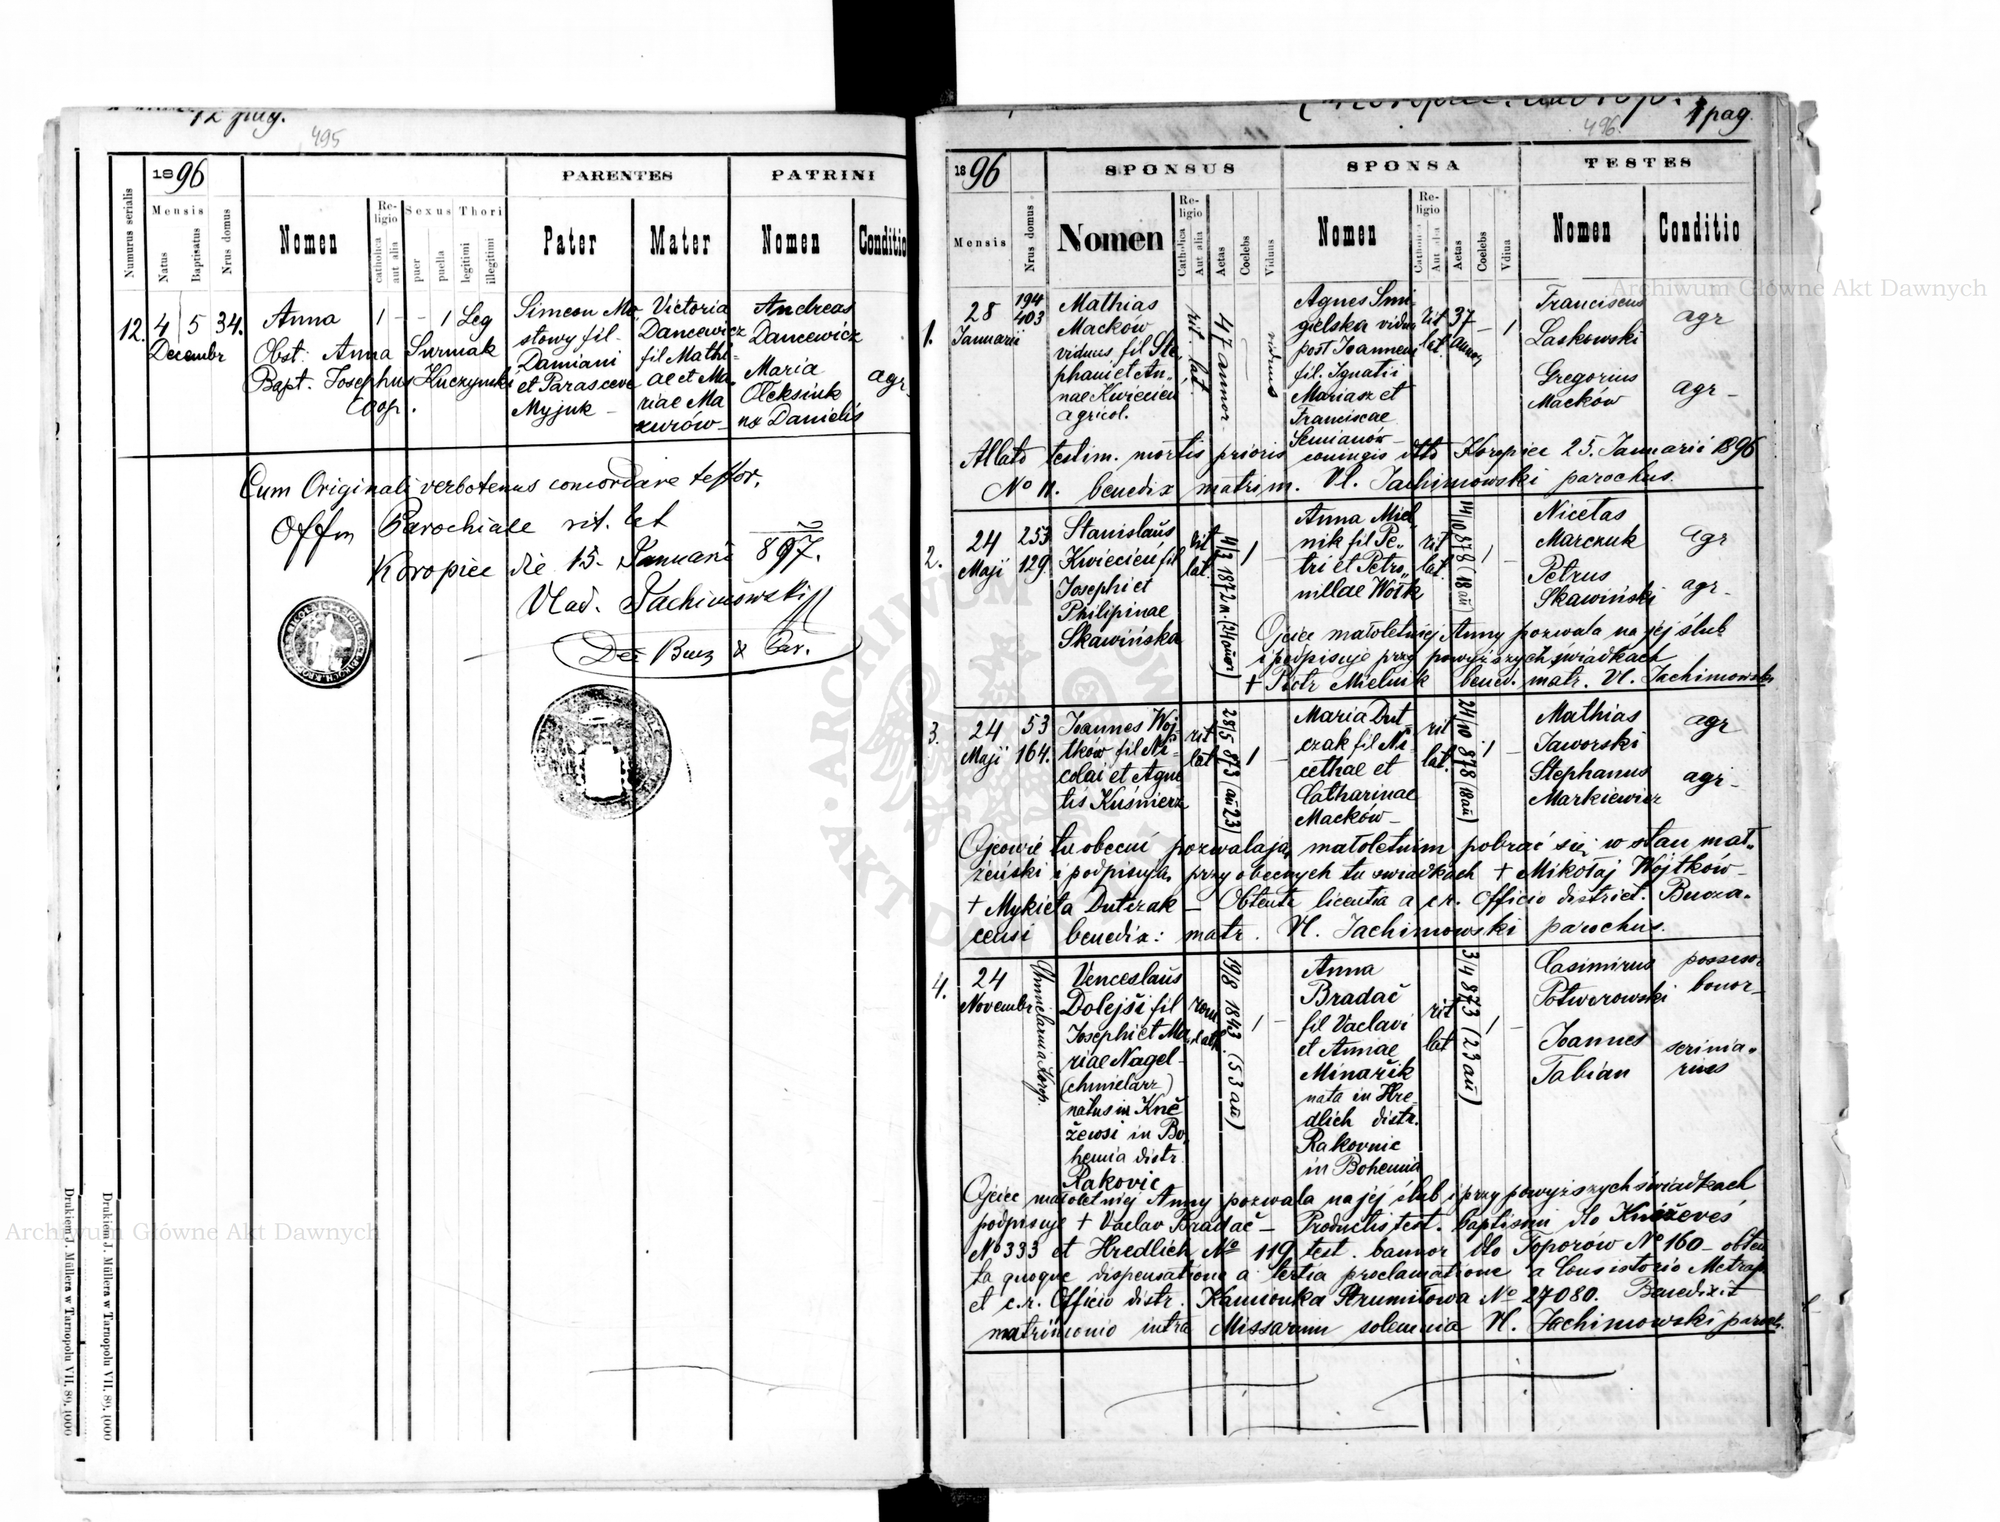 12 pag.
495
1896
PARENTES
PATRINI
Numurus serialis
Mensis
Natus
Baptisatus
Nrus domus
Nomen
Religio
catholica
aut alia
Sexus
puer
puella
Thori
legitimi
illegitimi
Pater
Mater
Nomen
Conditio
12. 4 5 34.
Decembr
Anna
1 - - 1 Leg
Obst: Anna Surmak
Bapt. Josephus Kuczynski
Coop.
Simeon Mo
stowy fil-
Damiani
et Parasceve
Myjuk -
Victoria
Dancewicz
fil Mathi-
ae et Ma-
riae Ma
zurów-
Andreas
Dancewicz
Maria
Oleksiuk
Danielis
agr
Cum Originali verbotenus concordare testor.
Offm Parochiale rit. lat
Koropiec die 15. Januarii 897.
Vlad. Jachimowski
Dec Bucz & Par.
Drukiem J. Müllera w Tarnopolu VII. 89, 1000
Drukiem J. Müllera w Tarnopolu VII. 89, 1000
1 pag.
496.
1896
SPONSUS
SPONSA
TESTES
Mensis
Nrus domus
Nomen
Religio
Catholica
Aut alia
Aetas
Coelebs
Viduus
Nomen
Religio
Catholica
Aut alia
Aetas
Coelebs
Vidua
Nomen
Conditio
1.
28
Januarii
194
403
Mathias
Mackow
viduus fil Ste
phani et An-
nae Kwiecień
agricol.
rit lat.
47 annor
viduus
Agnes Smi
gielska vidua
post Joannem
fil. Ignatii
Mariasz et
Franciscae
Semianów
rit
lat
37
annor
- 1
Franciscus
Laskowski
agr
Gregorius
Macków
agr -
Allato testim. mortis prioris coniugis dto Koropiec 25. Januarii 1896
No 11. benedix matrim. Vl. Jachimowski parochus.
2.
24
Maji
253
129.
Stanislaus
Kwiecień fil
Josephi et
Philipinae
Skawińska
rit
lat.
11/3 1872 n. (24 annor)
1 -
Anna Miel
nik fil Pe-
tri et Petro-
nillae Wołk
rit
lat.
14/10 878 (18 an)
1 -
Nicetas
Marczuk
agr
Petrus
Skawiński
agr -
Ojciec małoletniej Anny pozwala na jej ślub
i podpisuje przy powyższych świadkach
+ Piotr Mielnik bened. matr. Vl. Jachimowski
3.
24
Maji
53
164.
Joannes Woj-
tków fil Ni-
colai et Agne
tis Kuśnierz
rit
lat
28/5 873 (an 23)
1 -
Maria Dut-
czak fil Ni-
cethae et
Catharinae
Macków -
rit
lat.
24/10 878 (18 an)
1 -
Mathias
Jaworski
agr
Stephanus
Markiewicz
agr -
Ojcowie tu obecni pozwalają małoletnim pobrać się w stan mał-
żeński i podpisują przy obecnych tu świadkach + Mikołaj Wojtków -
+ Mykieta Dutczak - Obtenta licentia a c.r. Officio district. Bucza-
censi benedix: matr. Vl. Jachimowski parochus.
4.
24
Novembr
Chmielarnia Korop.
Venceslaus
Dolejši fil
Josephi et Ma
riae Nagel -
(chmielarz)
natus in Kně
ževsi in Bo-
hemia distr.
Rakovic
rom.
cath
19/8 1843 (53 an)
1 -
Anna
Bradač
fil Vaclavi
et Annae
Minařik
nata in Hre-
dlich distr.
Rakovnic
in Bohemia
rit
lat
3/4 873 (23 an)
1 -
Casimirus
Potworowski
possesor
bonor -
Joannes
Fabian
scrinia-
rius
Ojciec małoletniej Anny pozwala na jej ślub i przy powyższych świadkach
podpisuje + Vaclav Bradač - Productis test. baptismi dto Kneževeś
No 333 et Hredlich No 119 test. bannor dto Toporów No 160 - obten
ta quoque dispensatione a tertia proclamatione a Consistorio Metrop
et c.r. Officio distr. Kamionka Strumiłowa No 27080. Benedixit
matrimonio intra Missarum solemnia Vl. Jachimowski paroch.
Archiwum Główne Akt Dawnych
Archiwum Główne Akt Dawnych